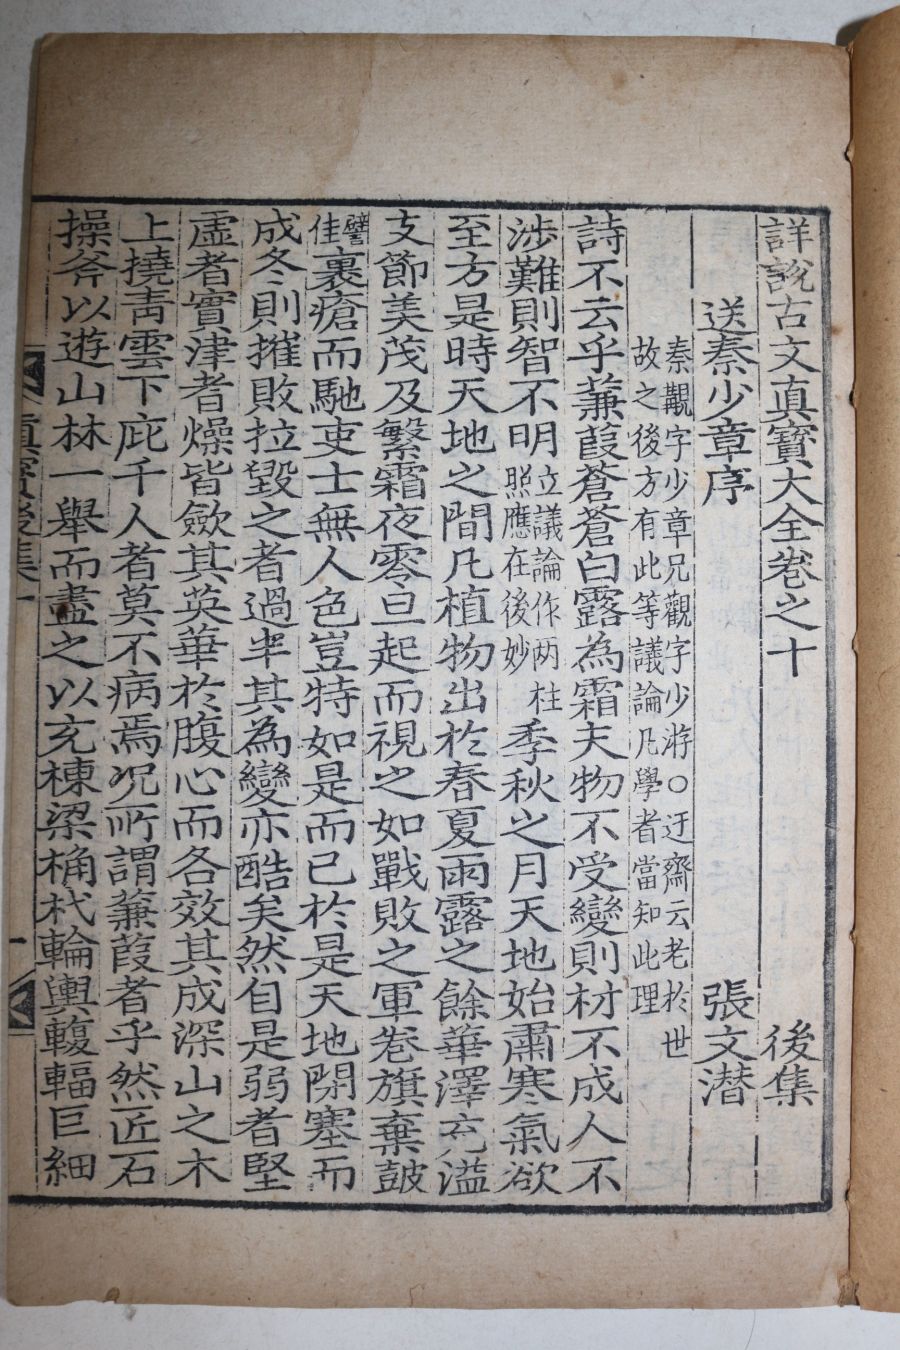 詳說古文真寶大全卷之十 後集
送秦少章序 張文潜
秦覯字少章兄觀字少游○迂齋云老於世
故之後方有此等議論凡學者當知此理
詩不云乎蒹葭蒼蒼白露為霜夫物不受變則材不成人不
涉難則智不明立議論作两柱照應在後妙季秋之月天地始肅寒氣欲
至方是時天地之間凡植物出於春夏雨露之餘華澤充溢
支節美茂及繁霜夜零旦起而視之如戰敗之軍卷旗棄皷
譬佳裹瘡而馳吏士無人色豈特如是而已於是天地閉塞而
成冬則摧敗拉毀之者過半其為變亦酷矣然自是弱者堅
虛者實津者燥皆歛其英華於腹心而各效其成深山之木
上撓靑雲下庇千人者莫不病焉况所謂蒹葭者乎然匠石
操斧以遊山林一舉而盡之以充棟梁桷杙輪輿輹輻巨細
真寶後集十
一